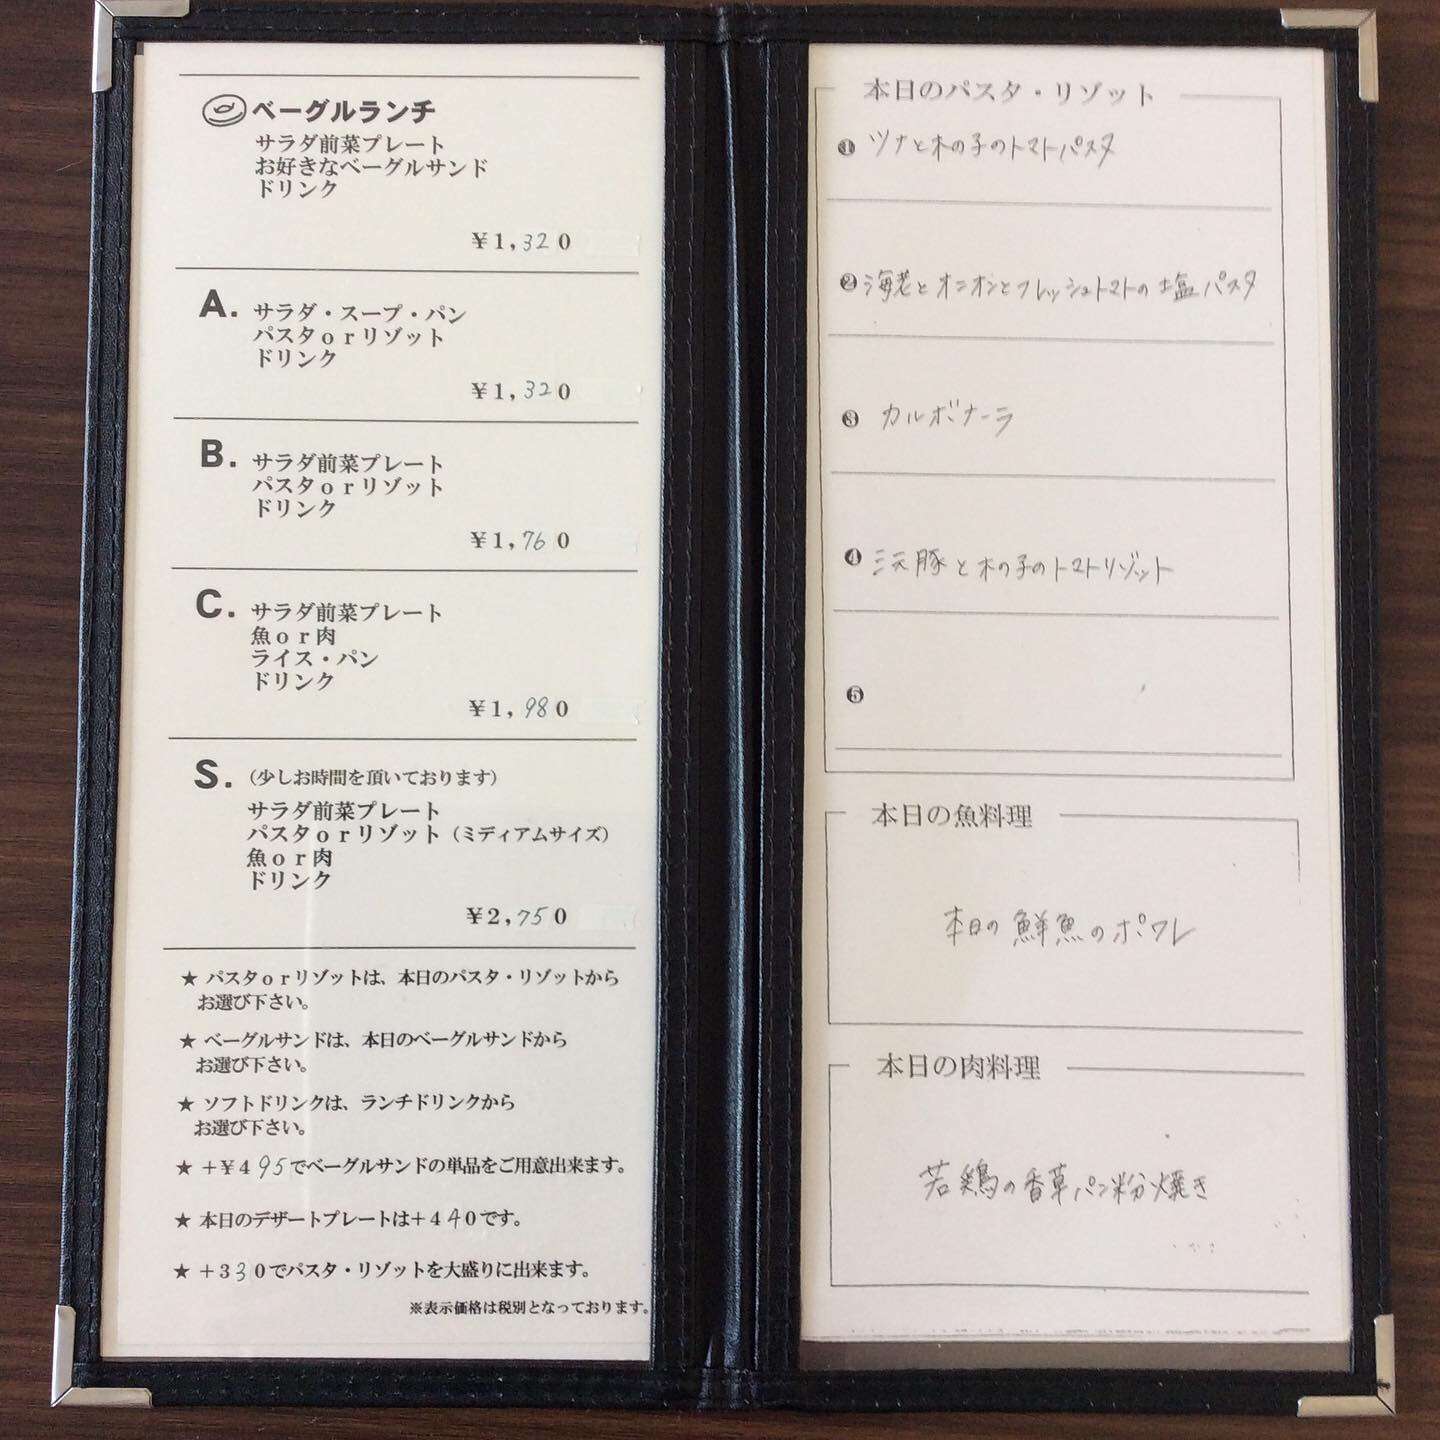 ベーグルランチ
サラダ前菜プレート
お好きなベーグルサンド
ドリンク
¥1,320
A. サラダ・スープ・パン
パスタorリゾット
ドリンク
¥1,320
B. サラダ前菜プレート
パスタorリゾット
ドリンク
¥1,760
C. サラダ前菜プレート
魚or肉
ライス・パン
ドリンク
¥1,980
S. (少しお時間を頂いております)
サラダ前菜プレート
パスタorリゾット(ミディアムサイズ)
魚or肉
ドリンク
¥2,750
★ パスタorリゾットは、本日のパスタ・リゾットから
お選び下さい。
★ ベーグルサンドは、本日のベーグルサンドから
お選び下さい。
★ ソフトドリンクは、ランチドリンクから
お選び下さい。
★ +¥495でベーグルサンドの単品をご用意出来ます。
★ 本日のデザートプレートは+440です。
★ +330でパスタ・リゾットを大盛りに出来ます。
※表示価格は税別となっております。
本日のパスタ・リゾット
❶ ツナと木の子のトマトパスタ
❷ 海老とオニオンとフレッシュトマトの塩パスタ
❸ カルボナーラ
❹ 三元豚と木の子のトマトリゾット
❺
本日の魚料理
本日の鮮魚のポワレ
本日の肉料理
若鶏の香草パン粉焼き